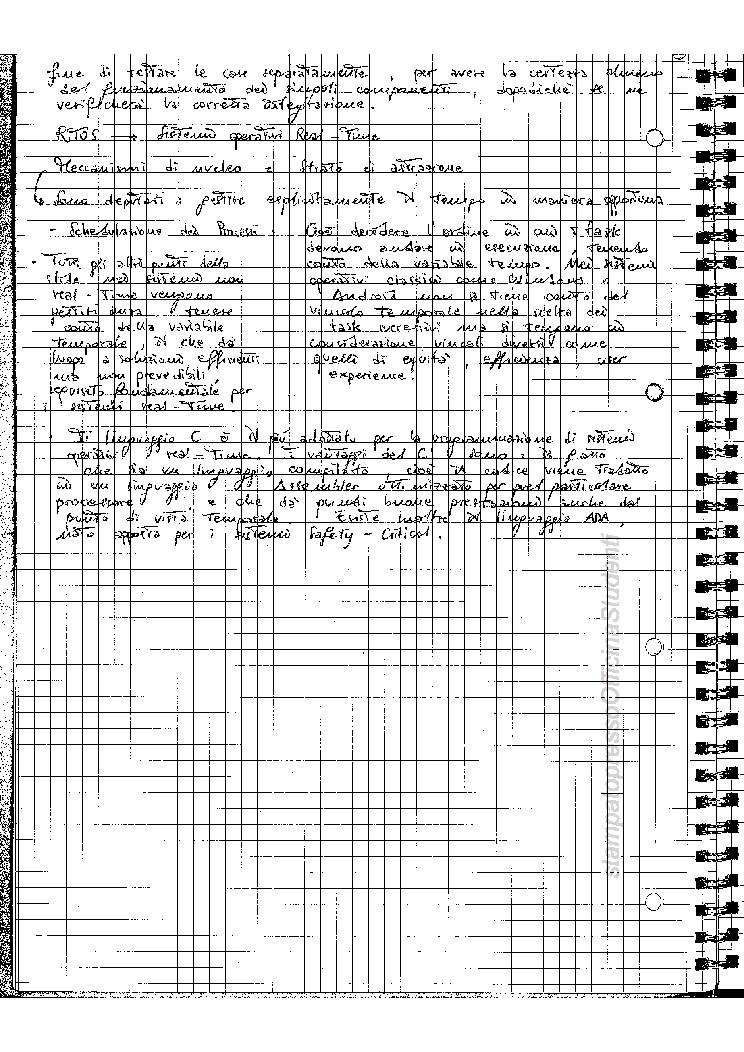 fine di testare le cose separatamente, per avere la certezza almeno
del funzionamento dei singoli componenti, dopodiché se ne
verificherà la corretta integrazione.
RTOS → Sistemi operativi Real-Time
Meccanismi di nucleo e strato di astrazione
Sono deputati a gestire esplicitamente il tempo in maniera opportuna
- Schedulazione dei Processi: Cioè decidere l'ordine in cui i task
devono andare in esecuzione, tenendo
conto della variabile tempo. Nei sistemi
operativi classici come Windows o
Android non si tiene conto del
vincolo temporale nella scelta dei
task ma si tengono in
considerazione vincoli diversi come
quelli di equità, efficienza, user
experience.
- Tutti gli altri punti della
nei sistemi non
real-Time vengono
gestiti senza tenere
conto della variabile
temporale, il che dà
luogo a soluzioni efficienti
ma non prevedibili,
requisito fondamentale per
sistemi real-Time.
Il linguaggio C è il più adottato per la programmazione di sistemi
operativi real-Time. I vantaggi del C sono: il fatto
che sia un linguaggio compilato cioè il codice viene tradotto
in un linguaggio Assembler ottimizzato per quel particolare
processore e che dà quindi buone prestazioni anche dal
punto di vista temporale. Esiste inoltre il linguaggio ADA,
nato apposta per i sistemi Safety-Critical.
stampatopressoOfficinaStudenti